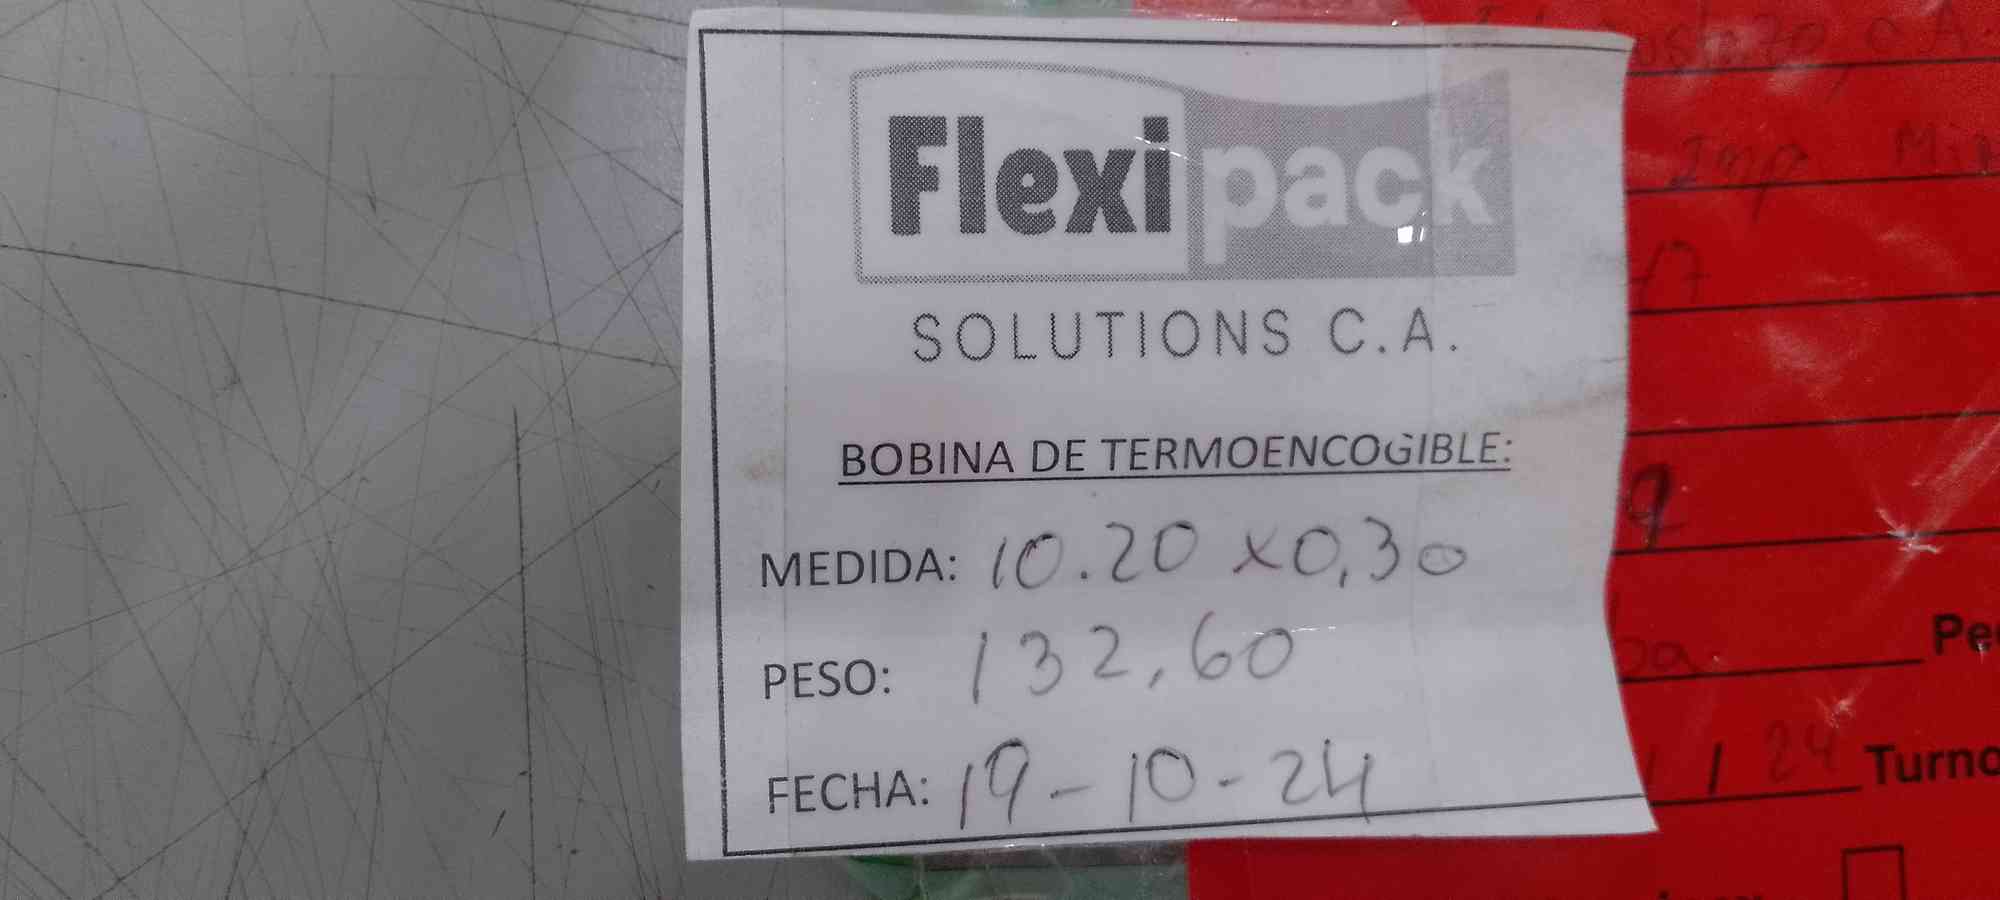 Flexipack
SOLUTIONS C.A.
BOBINA DE TERMOENCOGIBLE:
MEDIDA: 10.20 x 0,30
PESO: 132,60
FECHA: 19-10-24
Imp
9
/ 24 Turno